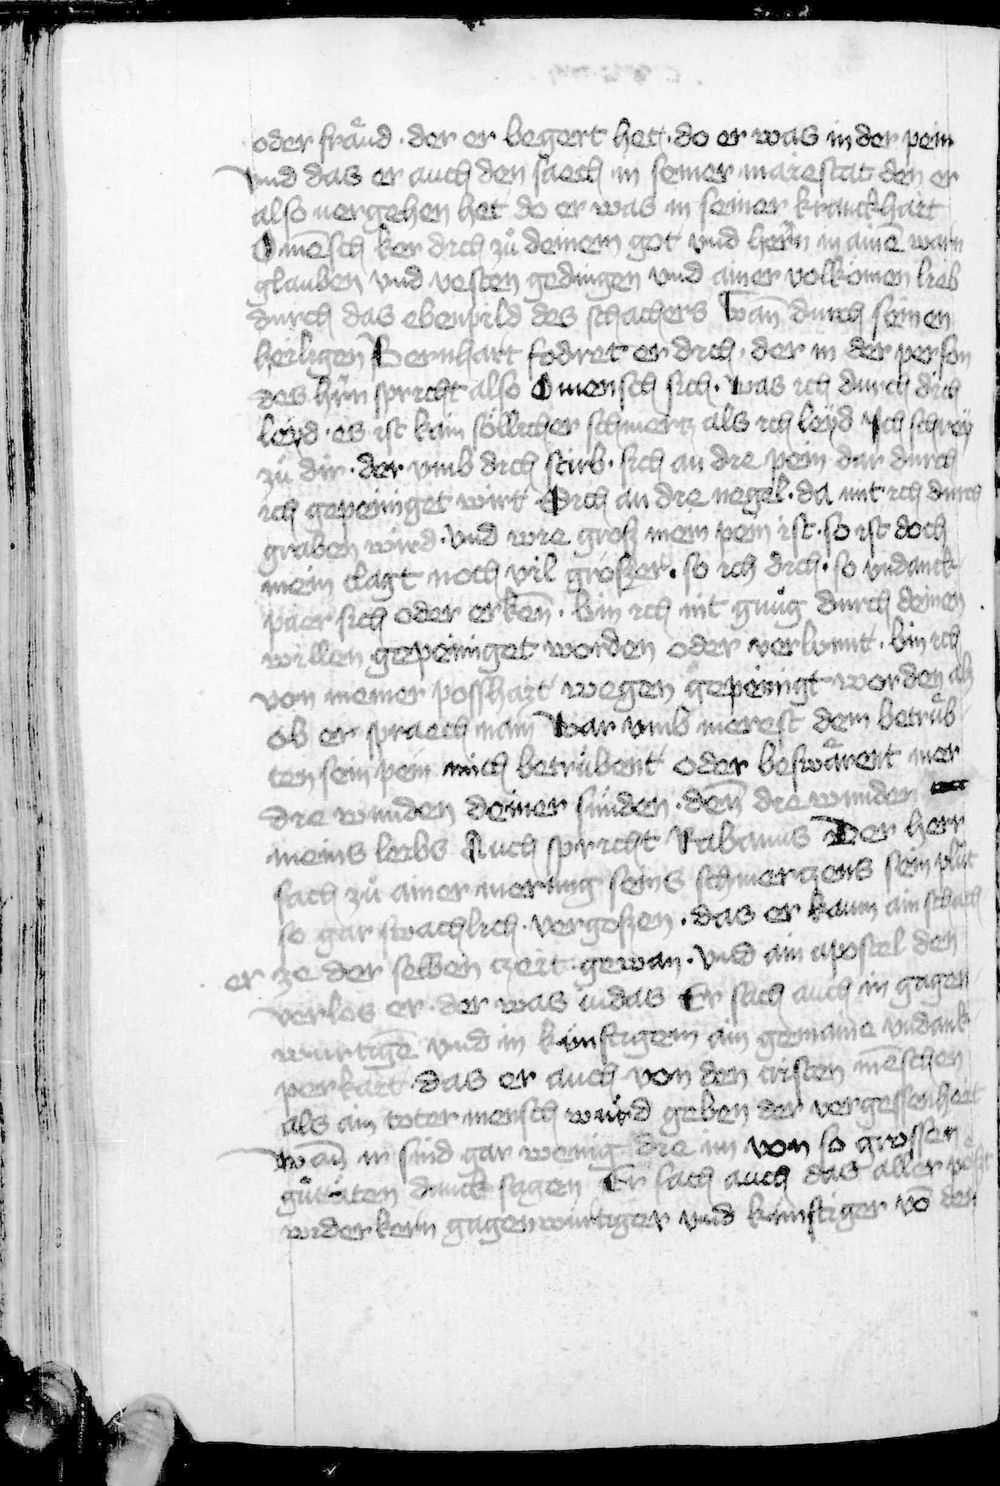 oder fräud · der er begert het · do er was in der pein
vnd das er auch den saech in seiner maiestat den er
also uergehen het do er was in seiner kranckhait
O mēsch ker dich zů deinem got vnd herr̄n in ainē warn
glauben vnd vesten gedingen vnd ainer volkōmen lieb
durch das ebenpild des schachers Wañ durch seinen
heiligen Bernhart fodret er dich · der in der person
des hr̄rn spricht also O mensch sich · was ich durch dich
leÿd · es ist kain söllicher schmertz als ich leÿd Ich schreÿ
zů dir · der vmb dich stirb · sich an die pein dar durch
ich gepeiniget wirt Sich an die negel · da mit ich durch
graben wird · vnd wie groß mein pein ist · so ist doch
mein clagt noch vil größer · so ich dich · so vndanck
päer sich oder erkeñ · bin ich nit gnůg durch deinen
willen gepeiniget worden oder verlumt · bin ich
von meiner poßhait wegen gepeinigt worden
ob er spraech nain War vmb merest dem betrůb
ten sein pein mich betrübent oder beswärent mer
die wunden deiner sünden · deñ die wunden
meins leibs Auch spricht Rabanus Der herr
sach zů ainer merung seins schmerczens sein plůt
so gar swachlich · vergoßen · das er kaum ain schach
er ze der selben czeit gewan · vnd ain apostel den
verlos er · der was iudas Er sach auch in gagen
wurtigē vnd in künftigem ain gemaine vndank
perkait das er auch von den cristen mēschen
als ain toter mensch würd geben der vergessenhait
Wañ ir sind gar wenig die im von so grossen
gůtäten danck sagen Er sach auch das aller pöst
widerkern gagenwürtiger vnd künftiger vō den